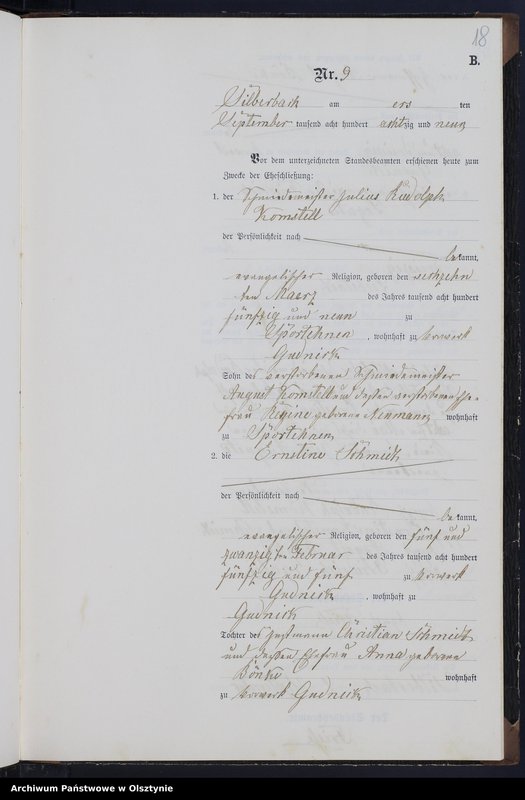 18
B.
Nr. 9
Silberbach am ers ten
September tausend acht hundert achtzig und neun
Vor dem unterzeichneten Standesbeamten erschienen heute zum
Zwecke der Eheschließung:
1. der Schmiedemeister Julius Rudolph
Komstell
der Persönlichkeit nach
be kannt,
evangelischer Religion, geboren den sechzehn
ten Maerz des Jahres tausend acht hundert
fünfzig und neun zu
Sportehnen, wohnhaft zu Vorwerk
Gudnick
Sohn des verstorbenen Schmiedemeister
August Komstell und dessen verstorbenen Ehe-
frau Regine geborene Neumann wohnhaft
zu Sportehnen
2. die Ernstine Schmeick
der Persönlichkeit nach
be kannt,
evangelischer Religion, geboren den fünf und
zwanzigten Februar des Jahres tausend acht hundert
fünfzig und fünf zu Vorwerk
Gudnick, wohnhaft zu
Gudnick
Tochter des Christian Schmeick
und dessen Ehefrau Anna geborene
wohnhaft
zu Vorwerk Gudnick
Archiwum Państwowe w Olsztynie